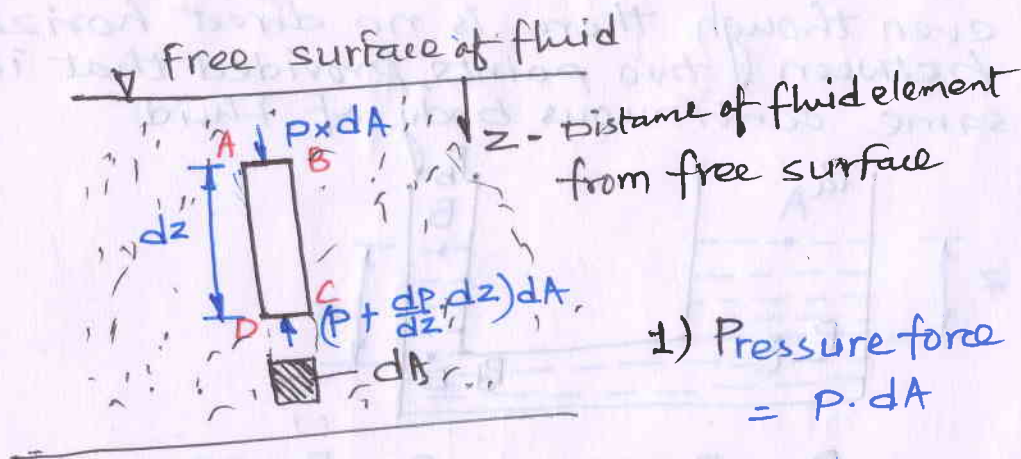 Free surface of fluid
A
p×dA
B
z - Distame of fluid element
from free surface
dz
C
D
(p + dp/dz, dz) dA
dA
1) Pressure force
= p. dA